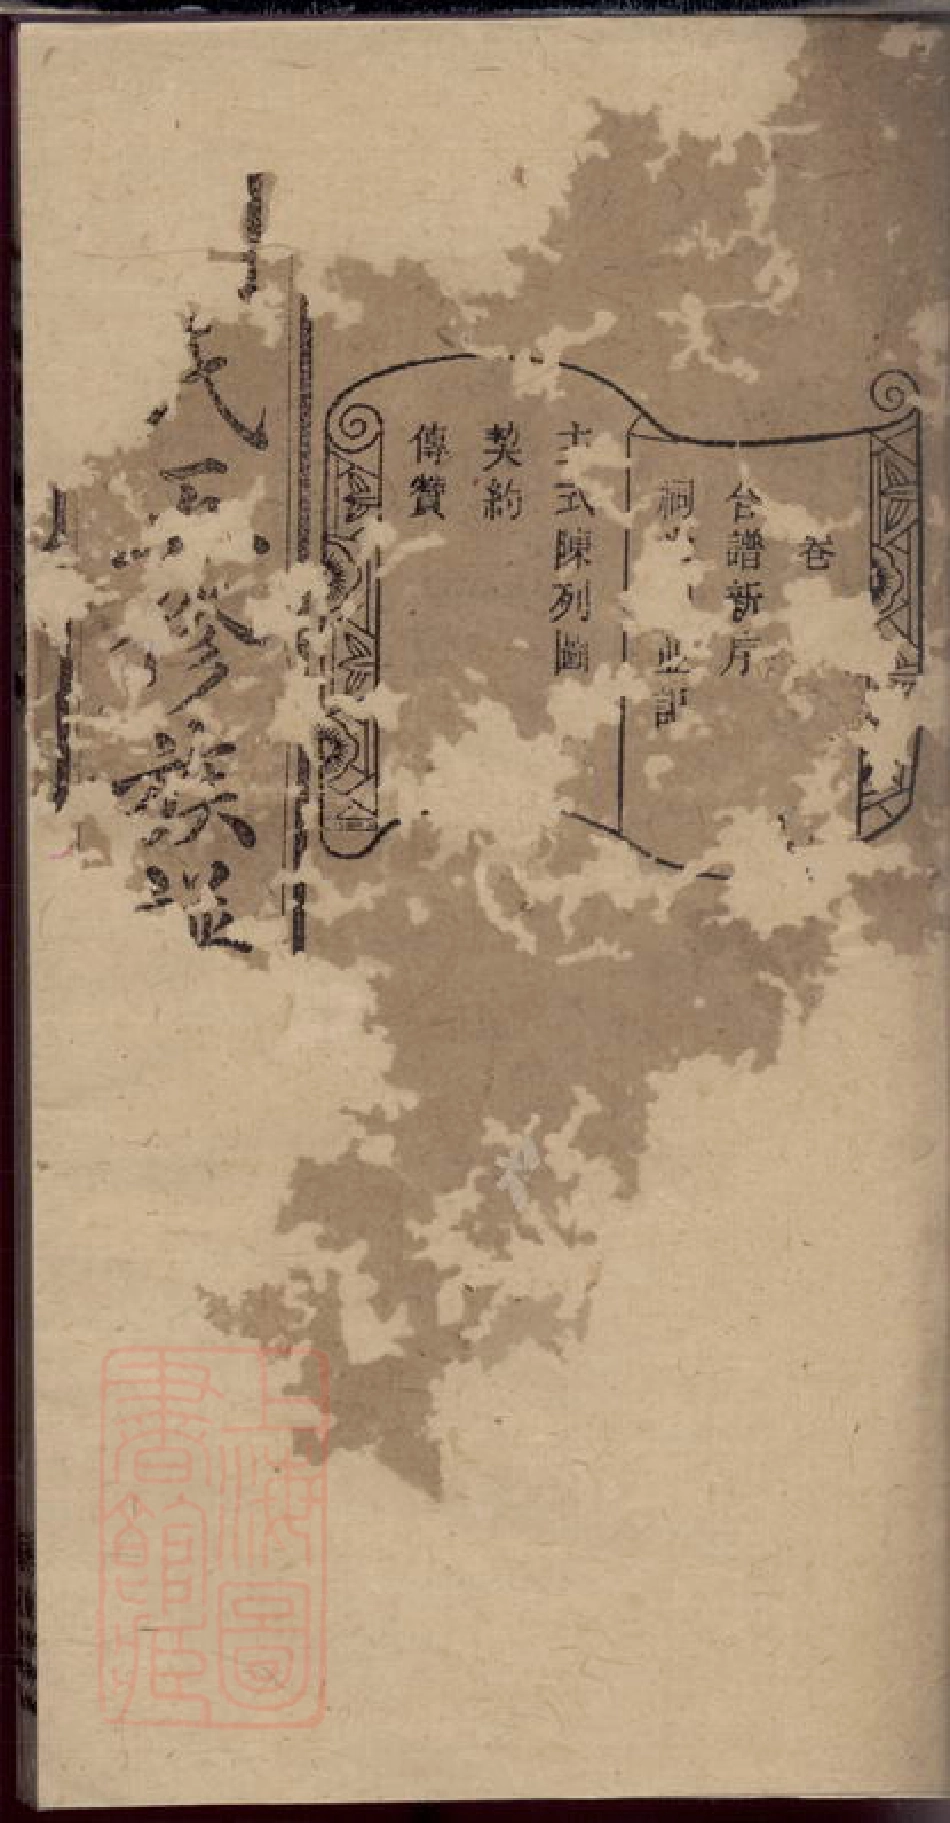 卷
合譜新序
祠 並記
主式陳列圖
契約
傳贊
氏五修族譜
上海圖書館藏